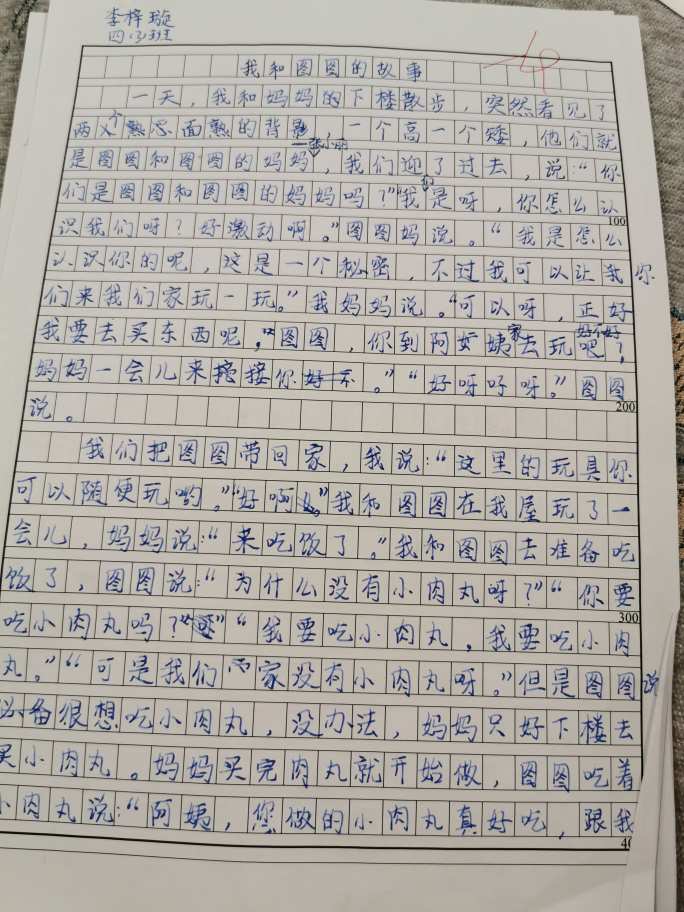 李梓璇
四(3)班
我和图图的故事
一天，我和妈妈的下楼散步，突然看见了
两个熟悉面熟的背影，一个高一个矮，他们就
是图图和图图的妈妈，我们迎了过去，说：“你
们是图图和图图的妈妈吗？”“我们是呀，你怎么认
100
识我们呀？好激动啊。”图图妈说。“我是怎么
认识你的呢，这是一个秘密，不过我可以让我你
们来我们家玩一玩。”我妈妈说。“可以呀，正好
我要去买东西呢，”“图图，你到阿姨家去玩好不好吧！
妈妈一会儿来接你。”“好呀呀呀。”图图
200
说。
我们把图图带回家，我说：“这里的玩具你
可以随便玩哟。”“好啊。”我和图图在我屋玩了一
会儿，妈妈说：“来吃饭了。”我和图图去准备吃
饭了，图图说：“为什么没有小肉丸呀？”“你要
300
吃小肉丸吗？”“我要吃小肉丸，我要吃小肉
丸。”“可是我们家没有小肉丸呀。”但是图图说
必备很想吃小肉丸，没办法，妈妈只好下楼去
买小肉丸。妈妈买完肉丸就开始做，图图吃着
小肉丸说：“阿姨，您做的小肉丸真好吃，跟我